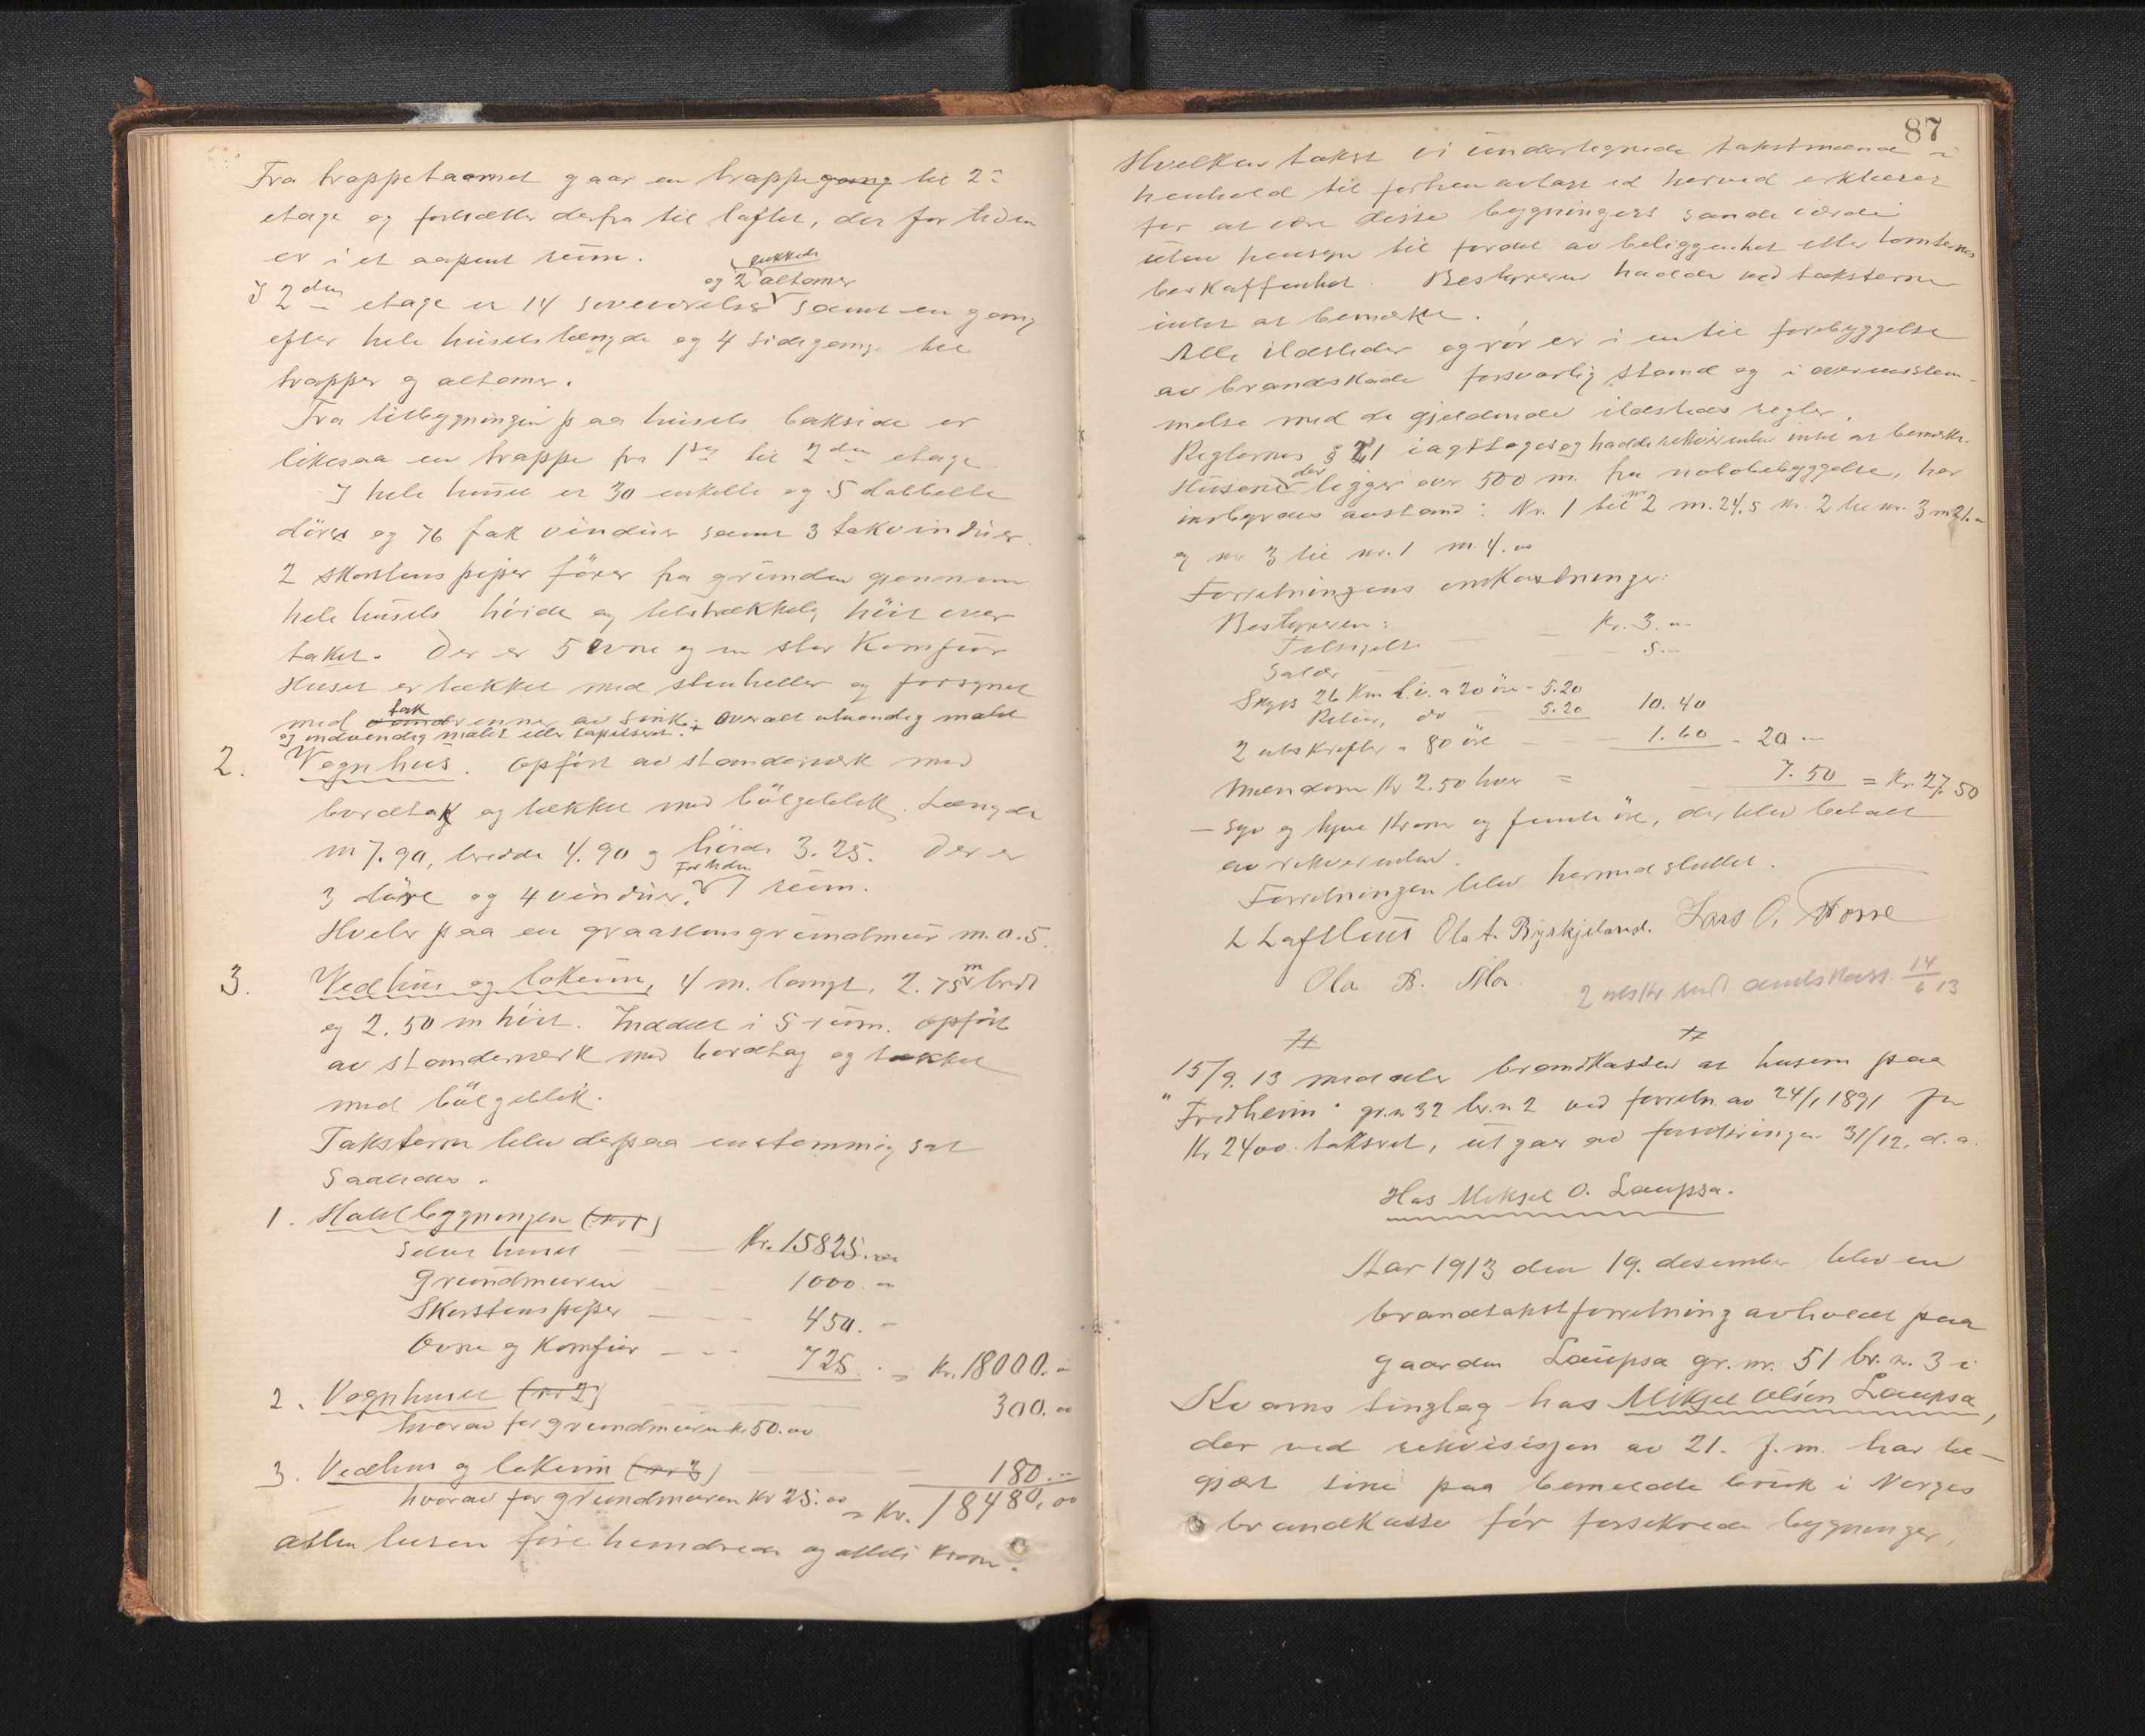 Fra trappetaarnet gaar en trappegang til 2
etage og fortsætter derfra til loftet, der for tiden
er i et aapent rum.
lukkede
og 2 altaner
I 2den etage er 14 soveværelser samt en gang
efter hele husets længde og 4 sidegange til
trapper og altaner.
Fra tilbygningen paa husets bakside er
likesaa en trappe fra 1ste til 2den etage.
I hele huset er 30 enkelte og 5 dobbelte
döre og 76 fak vinduer samt 3 takvinduer.
2 skorstenspiper förer fra grunden gjennem
hele husets höide og tilstrækkelig höit over
taket. Der er 5 ovne og en stor Komfur
Huset er tækket med stenheller og forsynet
tak
med renner av sink. Overalt utvendig malt
og indvendig malet eller tapetseret.
2. Vognhus. Opfört av standerverk med
bordtak og tækket med bölgeblik. Længde
m 7.90, bredde 4.90 og höide 3.25. Der er
For tiden
3 döre og 4 vinduer. 1 rum.
Hviler paa en graastensgrundmur m. 0.5.
3. Vedhus og lokum, 4 m. langt, 2.75 m bredt
og 2.50 m höit. Inddelt i 5 rum. Opfört
av standerverk med bordtag og tækket
med bölgeblik.
Taksterne blev derpaa enstemmig sat
saaledes.
1. Hotelbygningen (nr 1)
Selve huset Kr. 15825.00
Grundmuren 1000.-
Skorstenspiper 450.-
Ovne og Komfur 725. = Kr. 18000.-
2. Vognhuset (nr 2) 300.00
hvorav for grundmuren kr 50.00
3. Vedhus og lokum (nr 3) 180.-
hvorav for grundmuren Kr 25.00 = Kr. 18480,00
atten tusen fire hundrede og otteti Kroner.
87
Hvilken takst vi undertegnede takstmænd i
henhold til forhen avlagt ed herved erklærer
for at være disse bygningers sande værdi
uten hensyn til fordel av beliggenhet eller tomternes
beskaffenhet. Bestyreren hadde ved taksterne
intet at bemærke.
Alle ildsteder og rör er i en til forebyggelse
av brandskade forsvarlig stand og i overensstem-
melse med de gjeldende ildsteds regler.
Reglernes § 21 iagttages og hadde rekvirenten intet at bemerke.
der
Husene ligger over 500 m. fra nabobebyggelse, har
indbyrdes avstand: Nr. 1 til nr 2 m. 24.5 nr. 2 til nr. 3 m 21.
og nr 3 til nr. 1 m. 4.00
Forretningens omkostninger:
Bestyreren: Kr. 3.00
Tilsigelse
Salær 5
Skyss 26 Km à 20 öre - 5.20
Retur, do 5.20 10.40
2 utskrifter à 80 öre 1.60 - 20
Mændene Kr 2.50 hver = 7.50 = Kr. 27.50
- Syv og tyve Kroner og femti öre, der blev betalt
av rekvirenten.
Forretningen blev hermed sluttet.
L Lofthus Ola A. Byrkjeland. Lars O. Norse
Ola B. Mo.
2 utskr sendt amtskass. 14/6 13
15/9. 13 meddeler brandkassen at husene paa
"Fredheim" gr.n 32 br.n 2 ved forretn. av 24/1 1891 for
Kr 2400 taksert, utgaar av forsikringen 31/12. d. a.
Hos Mikjel O. Laupsa.
Aar 1913 den 19. desember blev en
brandtakstforretning avholdt paa
gaarden Laupsa gr. nr. 51 br. n. 3 i
Kvams tinglag hos Mikjel Olsen Laupsa,
der ved rekvisisjon av 21. f. m. har be-
gjært sine paa bemeldte bruk i Norges
brandkasse för forsikrede bygninger,